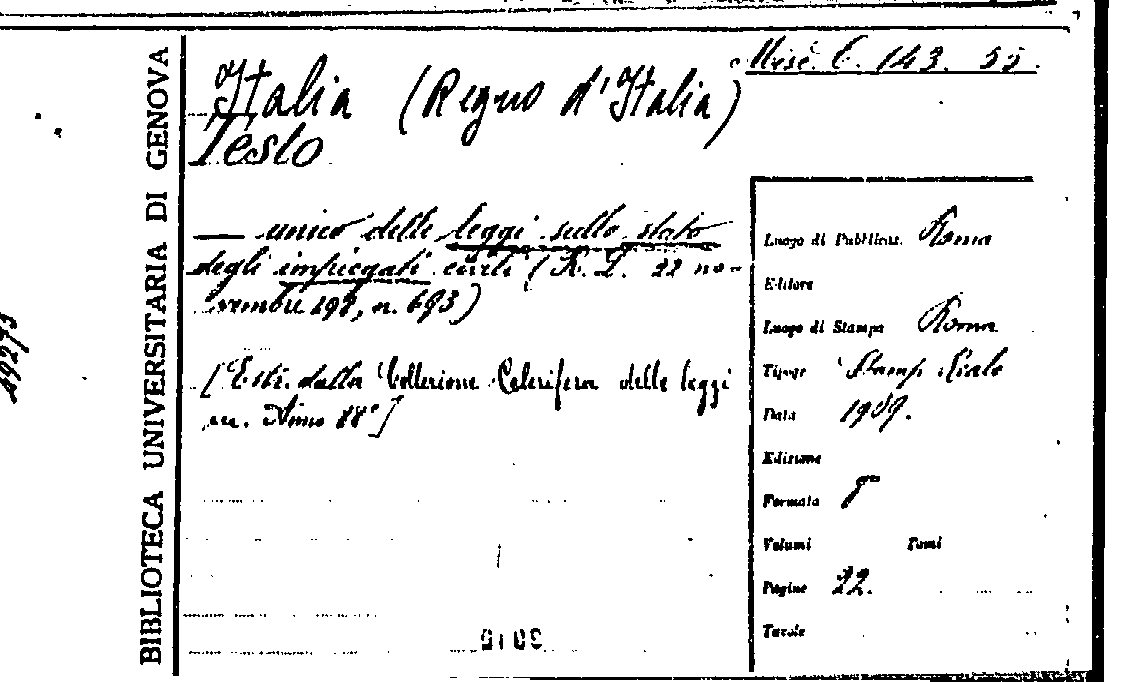 Misc. E. 143. 55.
BIBLIOTECA UNIVERSITARIA DI GENOVA
Italia (Regno d'Italia)
Testo
— unico delle leggi sullo stato
degli impiegati civili (R. D. 22 no-
vembre 198, n. 693)
[Estr. dalla Collezione Celerifera delle leggi
Anno 88°]
Luogo di Pubblicaz. Roma
Editore
Luogo di Stampa Roma
Tipogr Stamp. Reale
Data 1909.
Edizione
Formato 8°
Volumi Tomi
Pagine 22.
Tavole